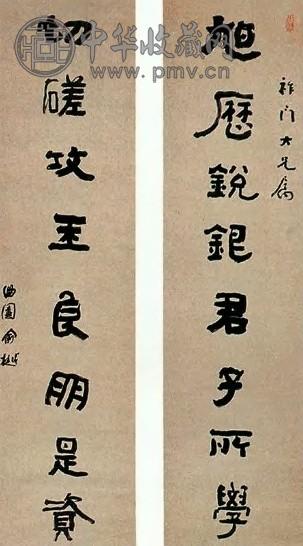 中华收藏网
www.pmv.cn
門大兄屬
歷銳銀君子所學
切磋攻玉良朋是資
曲園俞樾